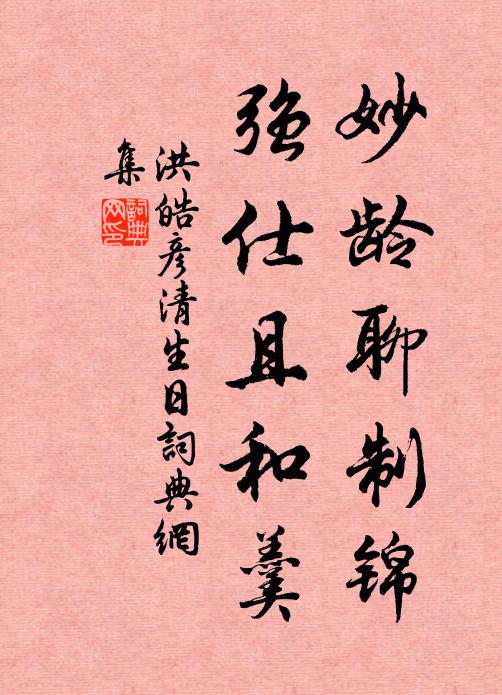 妙龄聊制锦
强仕且和羹
洪皓彦清生日詞典網
集
詞典
网印